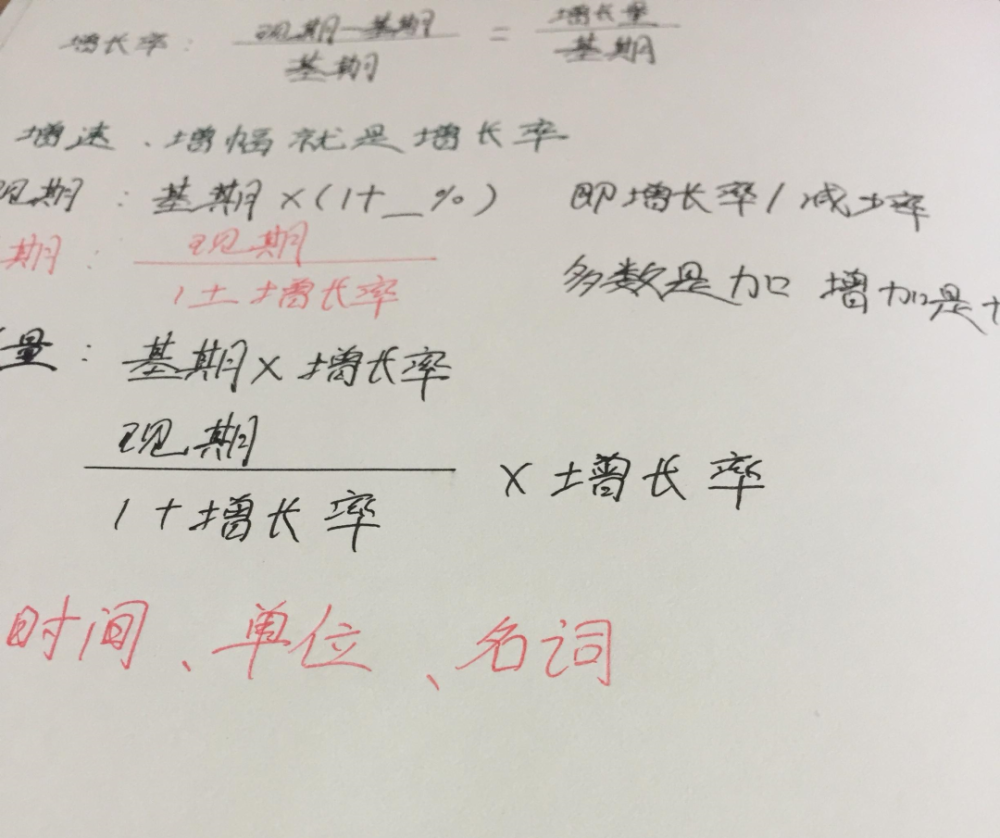 增长率： 现期－基期/基期 = 增长量/基期
增速、增幅就是增长率
现期：基期×(1+_%) 即增长率/减少率
期： 现期/1±增长率 多数是加 增加是+
量：基期×增长率
现期/1+增长率 ×增长率
时间、单位、名词